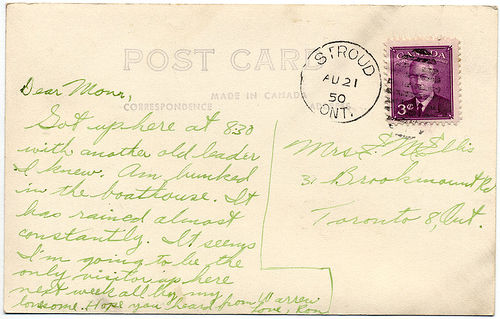 POST CARD
MADE IN CANADA
CORRESPONDENCE
STROUD
AU 21
50
ONT.
CANADA
3¢
Dear Mom,
Got up here at 830
with another old leader
I knew. Am bunked
in the boathouse. It
has rained almost
constantly. It seems
I'm going to be the
only visitor up here
next week all by my
lonesome. Hope you heard from Warren
Love, Ron
Mrs. E. McEllis
31 Brookmount Rd
Toronto 8, Ont.